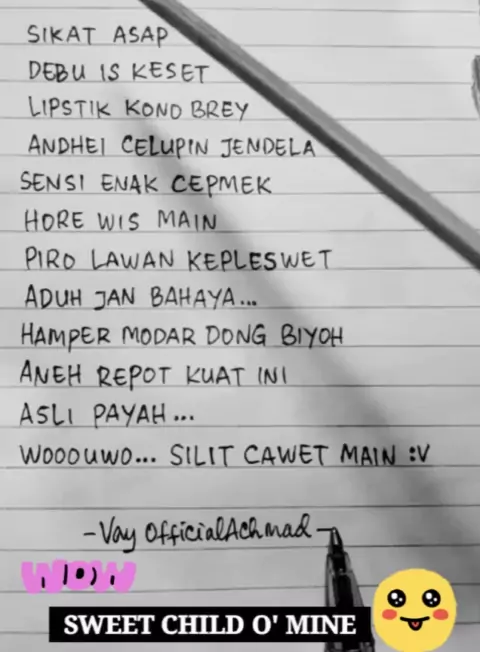 SIKAT ASAP
DEBU IS KESET
LIPSTIK KONO BREY
ANDHEI CELUPIN JENDELA
SENSI ENAK CEPMEK
HORE WIS MAIN
PIRO LAWAN KEPLESWET
ADUH JAN BAHAYA...
HAMPER MODAR DONG BIYOH
ANEH REPOT KUAT INI
ASLI PAYAH...
WOOOUWO... SILIT CAWET MAIN :V
-Vay OfficialAchmad-
WOW
SWEET CHILD O' MINE